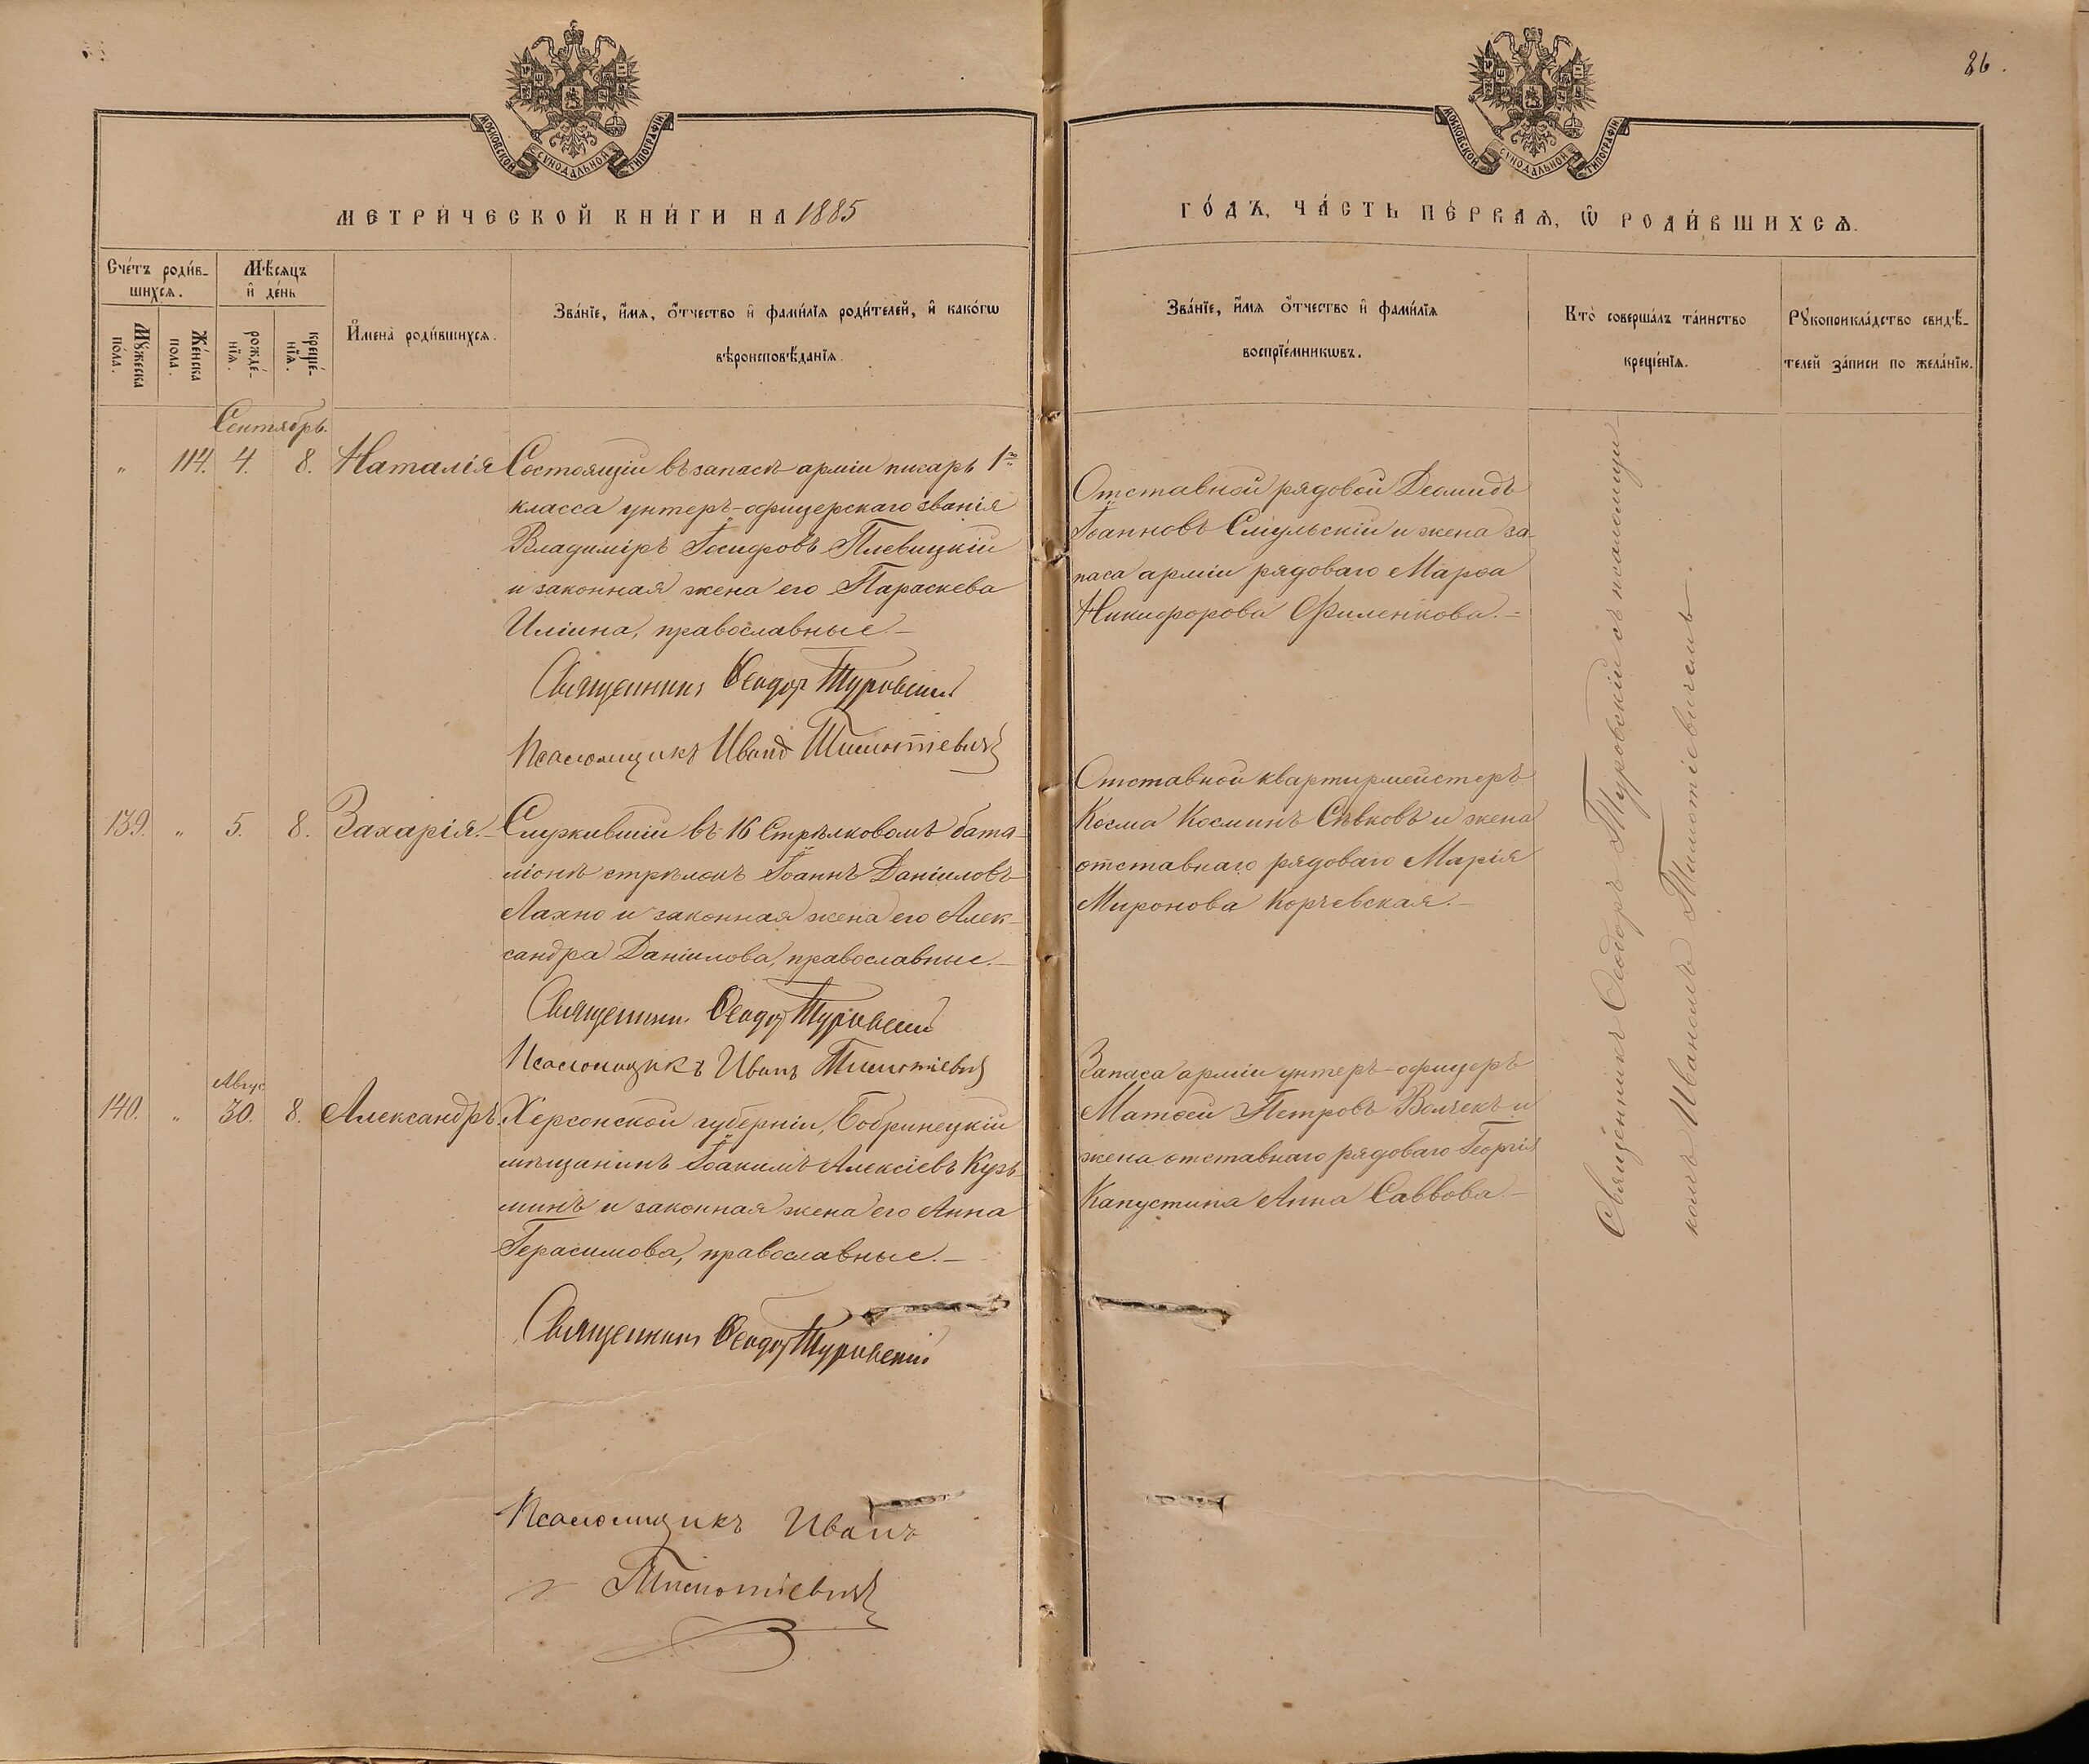 86.
МОСКОВСКОЙ СѴНОДАЛЬНОЙ ТИПОГРАФІИ
МОСКОВСКОЙ СѴНОДАЛЬНОЙ ТИПОГРАФІИ
МЕТРИ́ЧЕСКОЙ КНИ́ГИ НА 1885
ГО́ДЪ, ЧА́СТЬ ПЕ́РВАѦ, Ѽ РОДИ́ВШИХСѦ.
Сче́тъ роди́в-
шихсѧ.
Мѣ́сѧцъ
и҆ де́нь
Мꙋ́жеска
пола.
Же́нска
пола.
рожде́-
нїѧ.
креще́-
нїѧ.
И҆мена̀ роди́вшихсѧ.
Зва́нїе, и҆́мѧ, ѻ҆́тчество и҆ фами́лїѧ роди́телей, и҆ како́гѡ
вѣроисповѣ́данїѧ.
Зва́нїе, и҆́мѧ ѻ҆́тчество и҆ фами́лїѧ
воспрїе́мникѡвъ.
Кто̀ соверша́лъ та́инство
креще́нїѧ.
Рꙋкоприкла́дство свидѣ́-
телей за́писи по жела́нїю.
Сентябрь.
" 114. 4. 8. Наталія
Состоящій въ запасѣ арміи писарь 1го
класса унтеръ-офицерскаго званія
Владиміръ Іосифовъ Плевицкій
и законная жена его Параскева
Иліина, православные.–
Священникъ Ѳеодоръ Туровскій
Псаломщикъ Иванъ Тимотіевичъ
Отставной рядовой Деомидъ
Іоанновъ Смульскій и жена за-
паса арміи рядоваго Марѳа
Никифорова Филенкова.=
139. " 5. 8. Захарія.–
Служившій въ 16 Стрѣлковомъ бата-
ліонѣ стрѣлокъ Іоаннъ Даніиловъ
Лахно и законная жена его Алек-
сандра Даніилова, православные.–
Священникъ Ѳеодоръ Туровскій
Псаломщикъ Иванъ Тимотіевичъ
Отставной квартирмейстеръ
Косма Косминъ Сѣвковъ и жена
отставнаго рядоваго Марія
Миронова Корчевская.–
Авгус
140. " 30. 8. Александръ.
Херсонской губерніи, Бобринецкій
мѣщанинъ Іоакимъ Алексіевъ Кузь-
минъ и законная жена его Анна
Герасимова, православные.–
Священникъ Ѳеодоръ Туровскій
Псаломщикъ Иванъ
Тимотіевичъ
Запаса арміи унтеръ-офицеръ
Матѳей Петровъ Волчекъ и
жена отставнаго рядоваго Георгія
Капустина Анна Саввова.–
Священникъ Ѳеодоръ Туровскій съ псаломщи-
комъ Иваномъ Тимотіевичемъ.